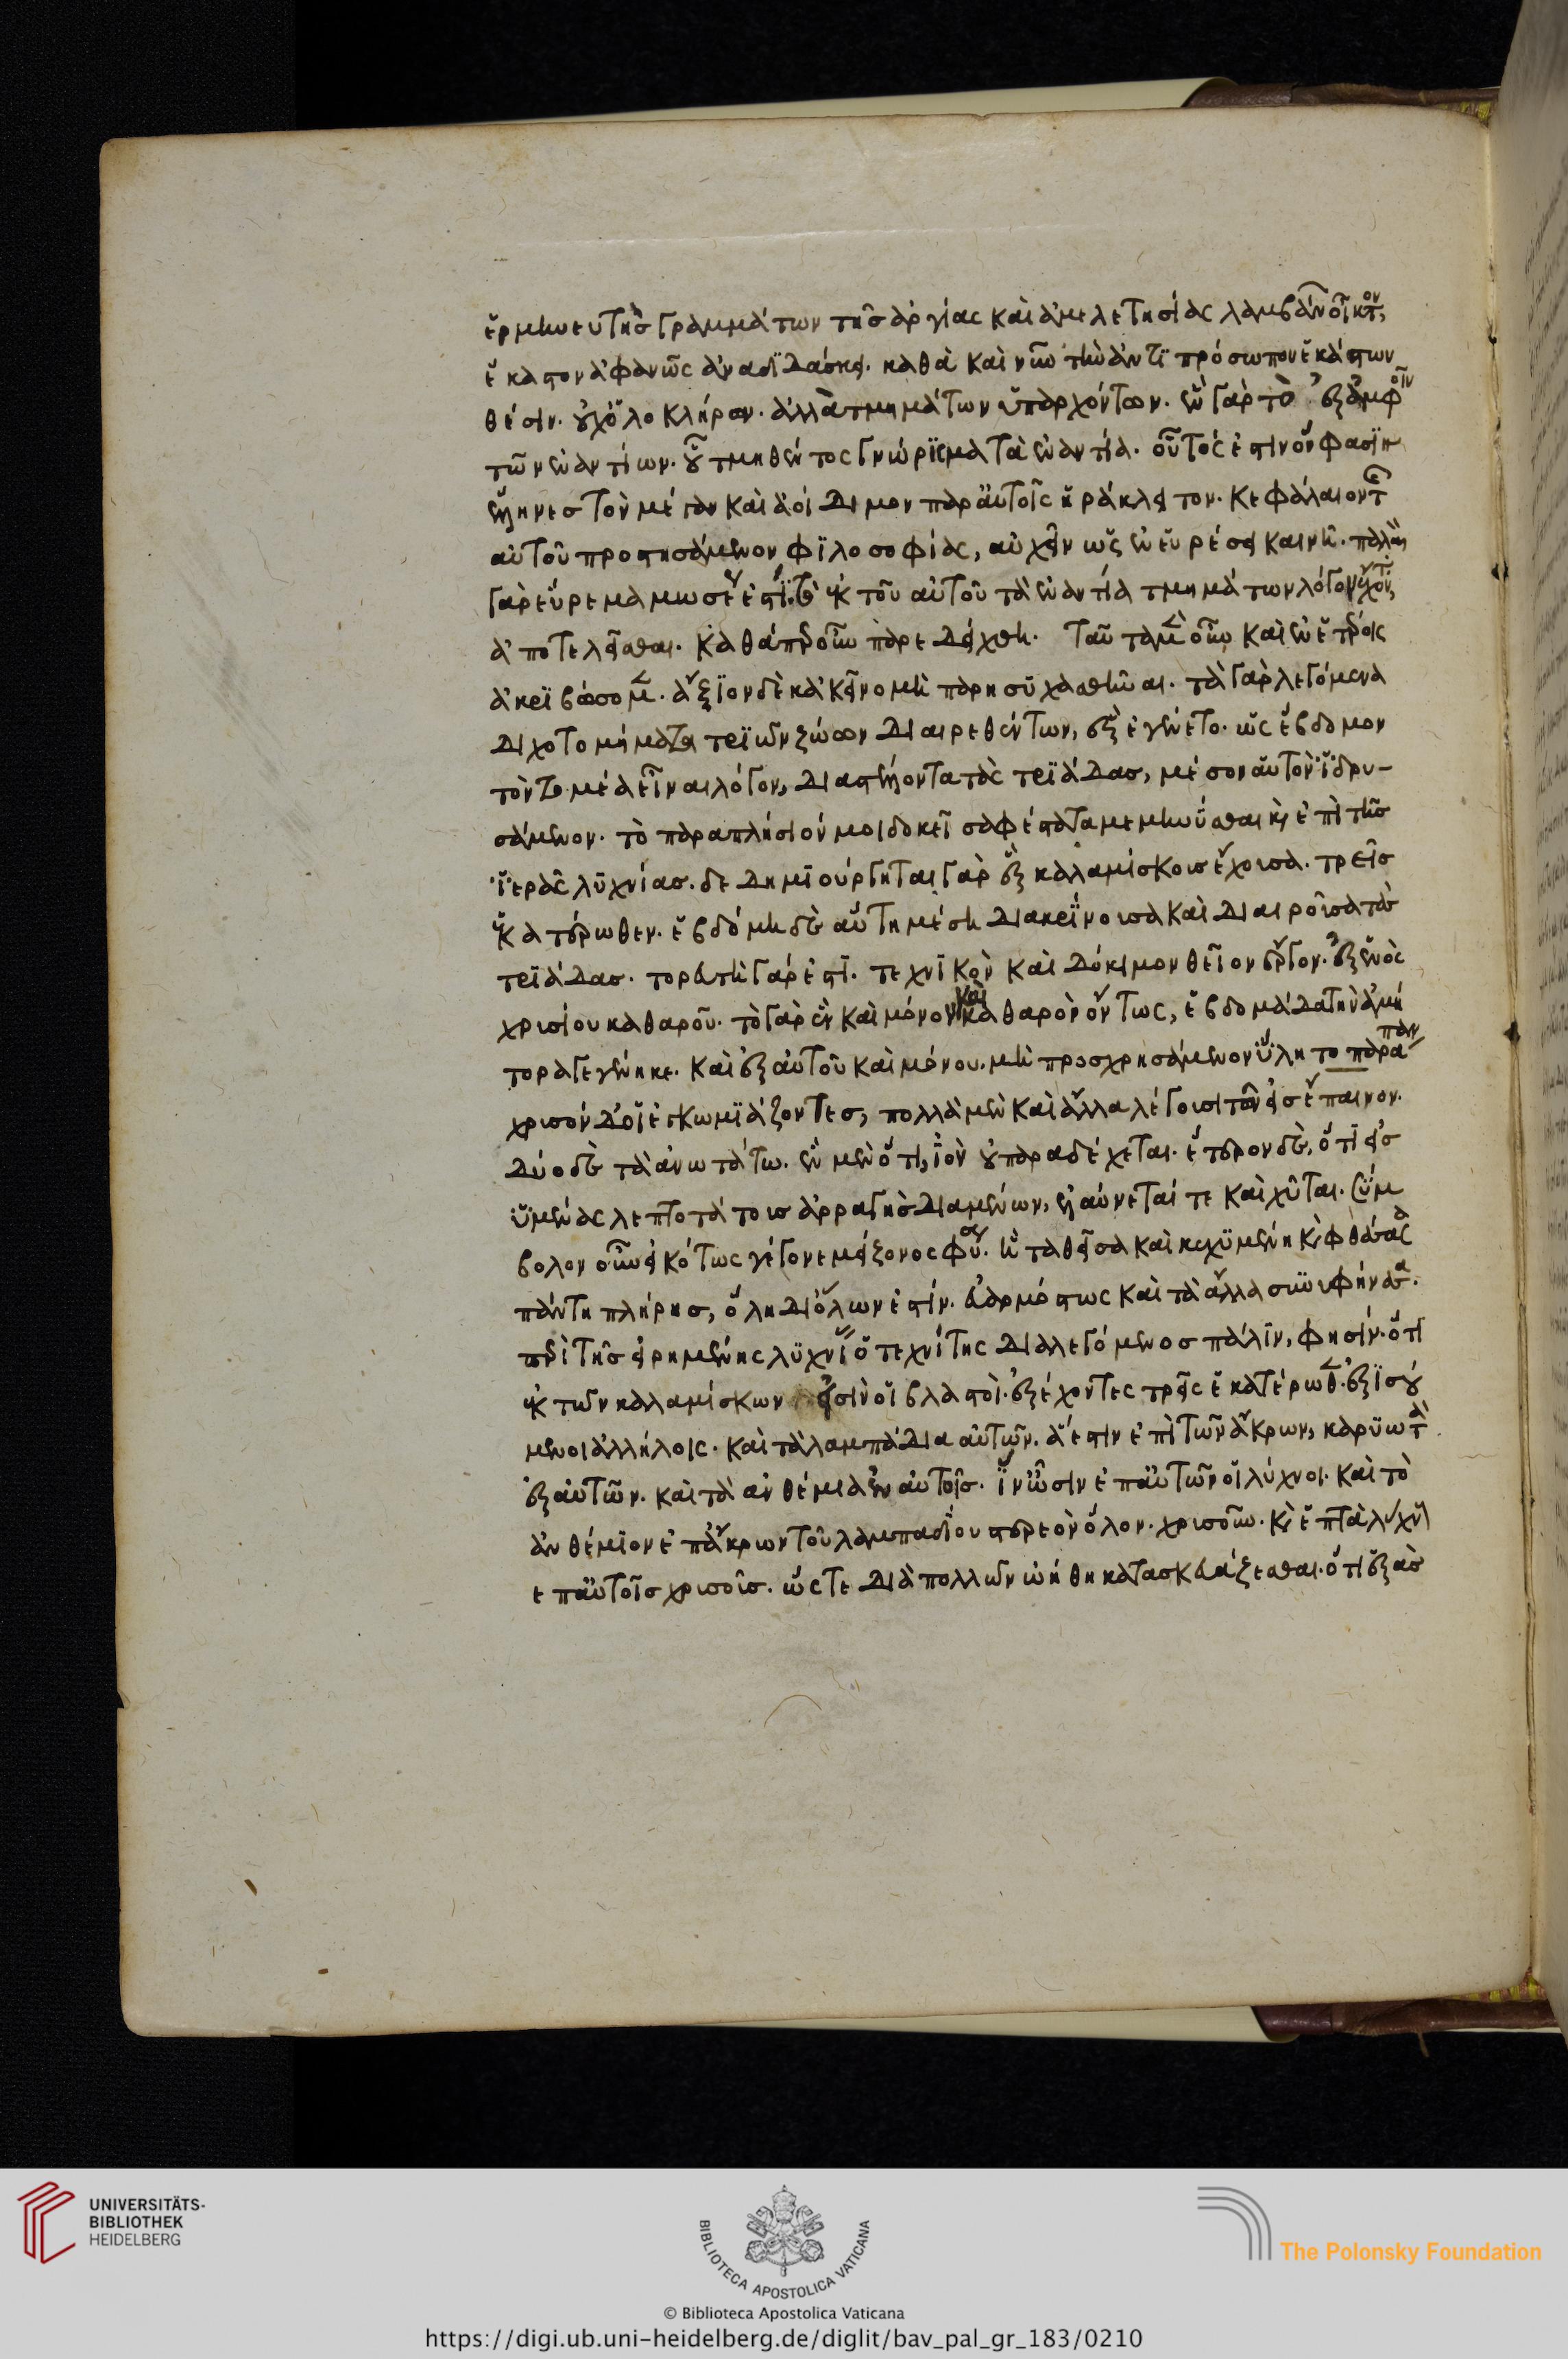 ἑρμηνευτὴς γραμμάτων τῆς ἀργίας καὶ ἀμελετησίας λαμβάνων οἶκτον,
ἕκαστον ἀφανῶς ἀναδϊδάσκει. καθὰ καὶ νῦν τὴν ἀντϊπρόσωπον ἑκάστων
θέσιν. οὐχ ὁλοκλήρων. ἀλλὰ τμημάτων ὑπαρχόντων. ἓν γὰρ τὸ ἐξ ἀμφοῖν
τῶν ἐναντίων. οὗ τμηθέντος γνώρϊμα τὰ ἐναντία. οὗτός ἐστιν ὅν φασϊν
ἕλληνες τὸν μέγαν καὶ ἀοίδιμον παρ' αὐτοῖς ἡράκλειτον. κεφάλαιον τῆς
αὐτοῦ προστησάμενον φϊλοσοφίας, αὐχεῖν ὡς ἐν εὑρέσει καινῆ. παλαιὸν
γὰρ εὕρεμα μωσέως ἐστϊ. τὸ ἐκ τοῦ αὐτοῦ τὰ ἐναντία τμημάτων λόγον ἔχοντα,
ἀποτελεῖσθαι. καθάπερ οὖν παρεδείχθη. ταῦτα μὲν οὖν καὶ ἐν ἑτέροις
ἀκρϊβώσομεν. ἄξϊον δὲ κἀκεῖνο μὴ παρησυχασθῆναι. τὰ γὰρ λεγόμενα
διχοτομήματα τρϊῶν ζώων διαιρεθέντων, ἓξ ἐγένετο. ὡς ἕβδομον
τὸν τομέα εἶναι λόγον, διαστέλλοντα τὰς τρϊάδας, μέσον αὐτὸν ἱδρυ-
σάμενον. τὸ παραπλήσιόν μοι δοκεῖ σαφέστατα μεμηνύσθαι καὶ ἐπὶ τῆς
ἱερᾶς λυχνίας. δεδημϊούργηται γὰρ ἓξ καλαμίσκους ἔχουσα. τρεῖς
ἑκατέρωθεν. ἑβδόμη δὲ αὕτη μέση διακρϊνουσα καὶ διαιροῦσα τὰς
τρϊάδας. τορευτὴ γάρ ἐστϊ. τεχνϊκὸν καὶ δόκιμον θεῖον ἔργον. ἐξ ἑνὸς
χρυσίου καθαροῦ. τὸ γὰρ ἓν καὶ μόνον καὶ καθαρὸν ὄντως, ἑβδομάδα τὴν ἀμή
τορα γεγέννηκε. καὶ ἐξ αὐτοῦ καὶ μόνου. μὴ προσχρησάμενον ὕλη το παράπαν
χρυσὸν δ' οἱ ἐγκωμϊάζοντες, πολλὰ μὲν καὶ ἄλλα λέγουσι τῶν εἰς ἔπαινον.
δύο δὲ τὰ ἀνωτάτω. ἓν μὲν ὅτι, ἰὸν οὐ παραδέχεται. ἕτερον δὲ, ὅτϊ εἰς
ὑμένας λεπτοτάτους ἀρραγὴς διαμένων, ἐλαύνεταί τε καὶ χεῖται. σύμ
βολον οὖν εἰκότως γέγονε μείζονος φύσεως. ἣ ταθεῖσα καὶ κεχϋμένη καὶ φθάσασα
πάντη πλήρης, ὅλη δι' ὅλων ἐστίν. εὐαρμόστως καὶ τὰ ἄλλα συνυφήνασα.
περὶ τῆς εἰρημένης λϋχνίας ὁ τεχνίτης διαλεγόμενος πάλϊν, φησίν. ὅτι
ἐκ τῶν καλαμίσκων εἰσὶν οἱ βλαστοὶ. ἐξέχοντες τρεῖς ἑκατέρωθεν. ἐξϊσού
μενοι ἀλλήλοις. καὶ τὰ λαμπάδια αὐτῶν. ἅ ἐστιν ἐπὶ τῶν ἄκρων, καρϋωτὰ
ἐξ αὐτῶν. καὶ τὰ ἀνθέμια ἐν αὐτοῖς. ἵν' ὦσιν ἐπ' αὐτῶν οἱ λύχνοι. καὶ τὸ
ἀνθέμϊον ἐπ' ἄκρων τοῦ λαμπαδίου στερεὸν ὅλον. χρυσοῦν. καὶ ἑπτὰ λύχνους
ἐπ' αὐτοῖς χρυσοῦς. ὥστε διὰ πολλῶν ὠήθη κατασκευάζεσθαι. ὅτι ἑξὰς
UNIVERSITÄTS-
BIBLIOTHEK
HEIDELBERG
BIBLIOTECA APOSTOLICA VATICANA
The Polonsky Foundation
© Biblioteca Apostolica Vaticana
https://digi.ub.uni-heidelberg.de/diglit/bav_pal_gr_183/0210